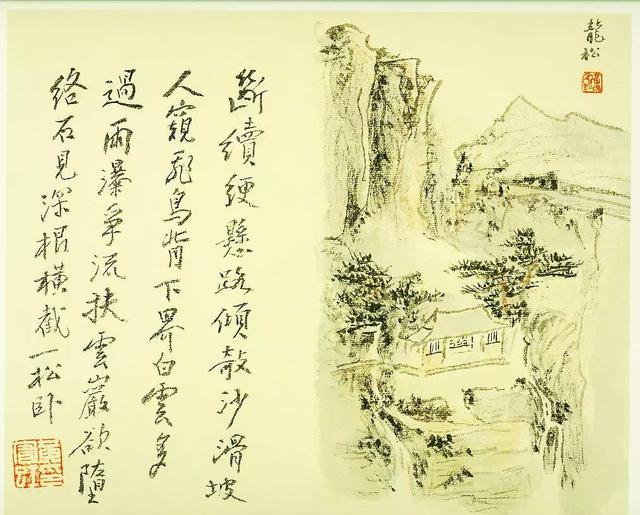 龍松
斷續綆懸路傾欹沙滑坡
人窺飛鳥背下界白雲多
過雨瀑爭流扶雲巖欲墮
絡石見深根橫截一松卧